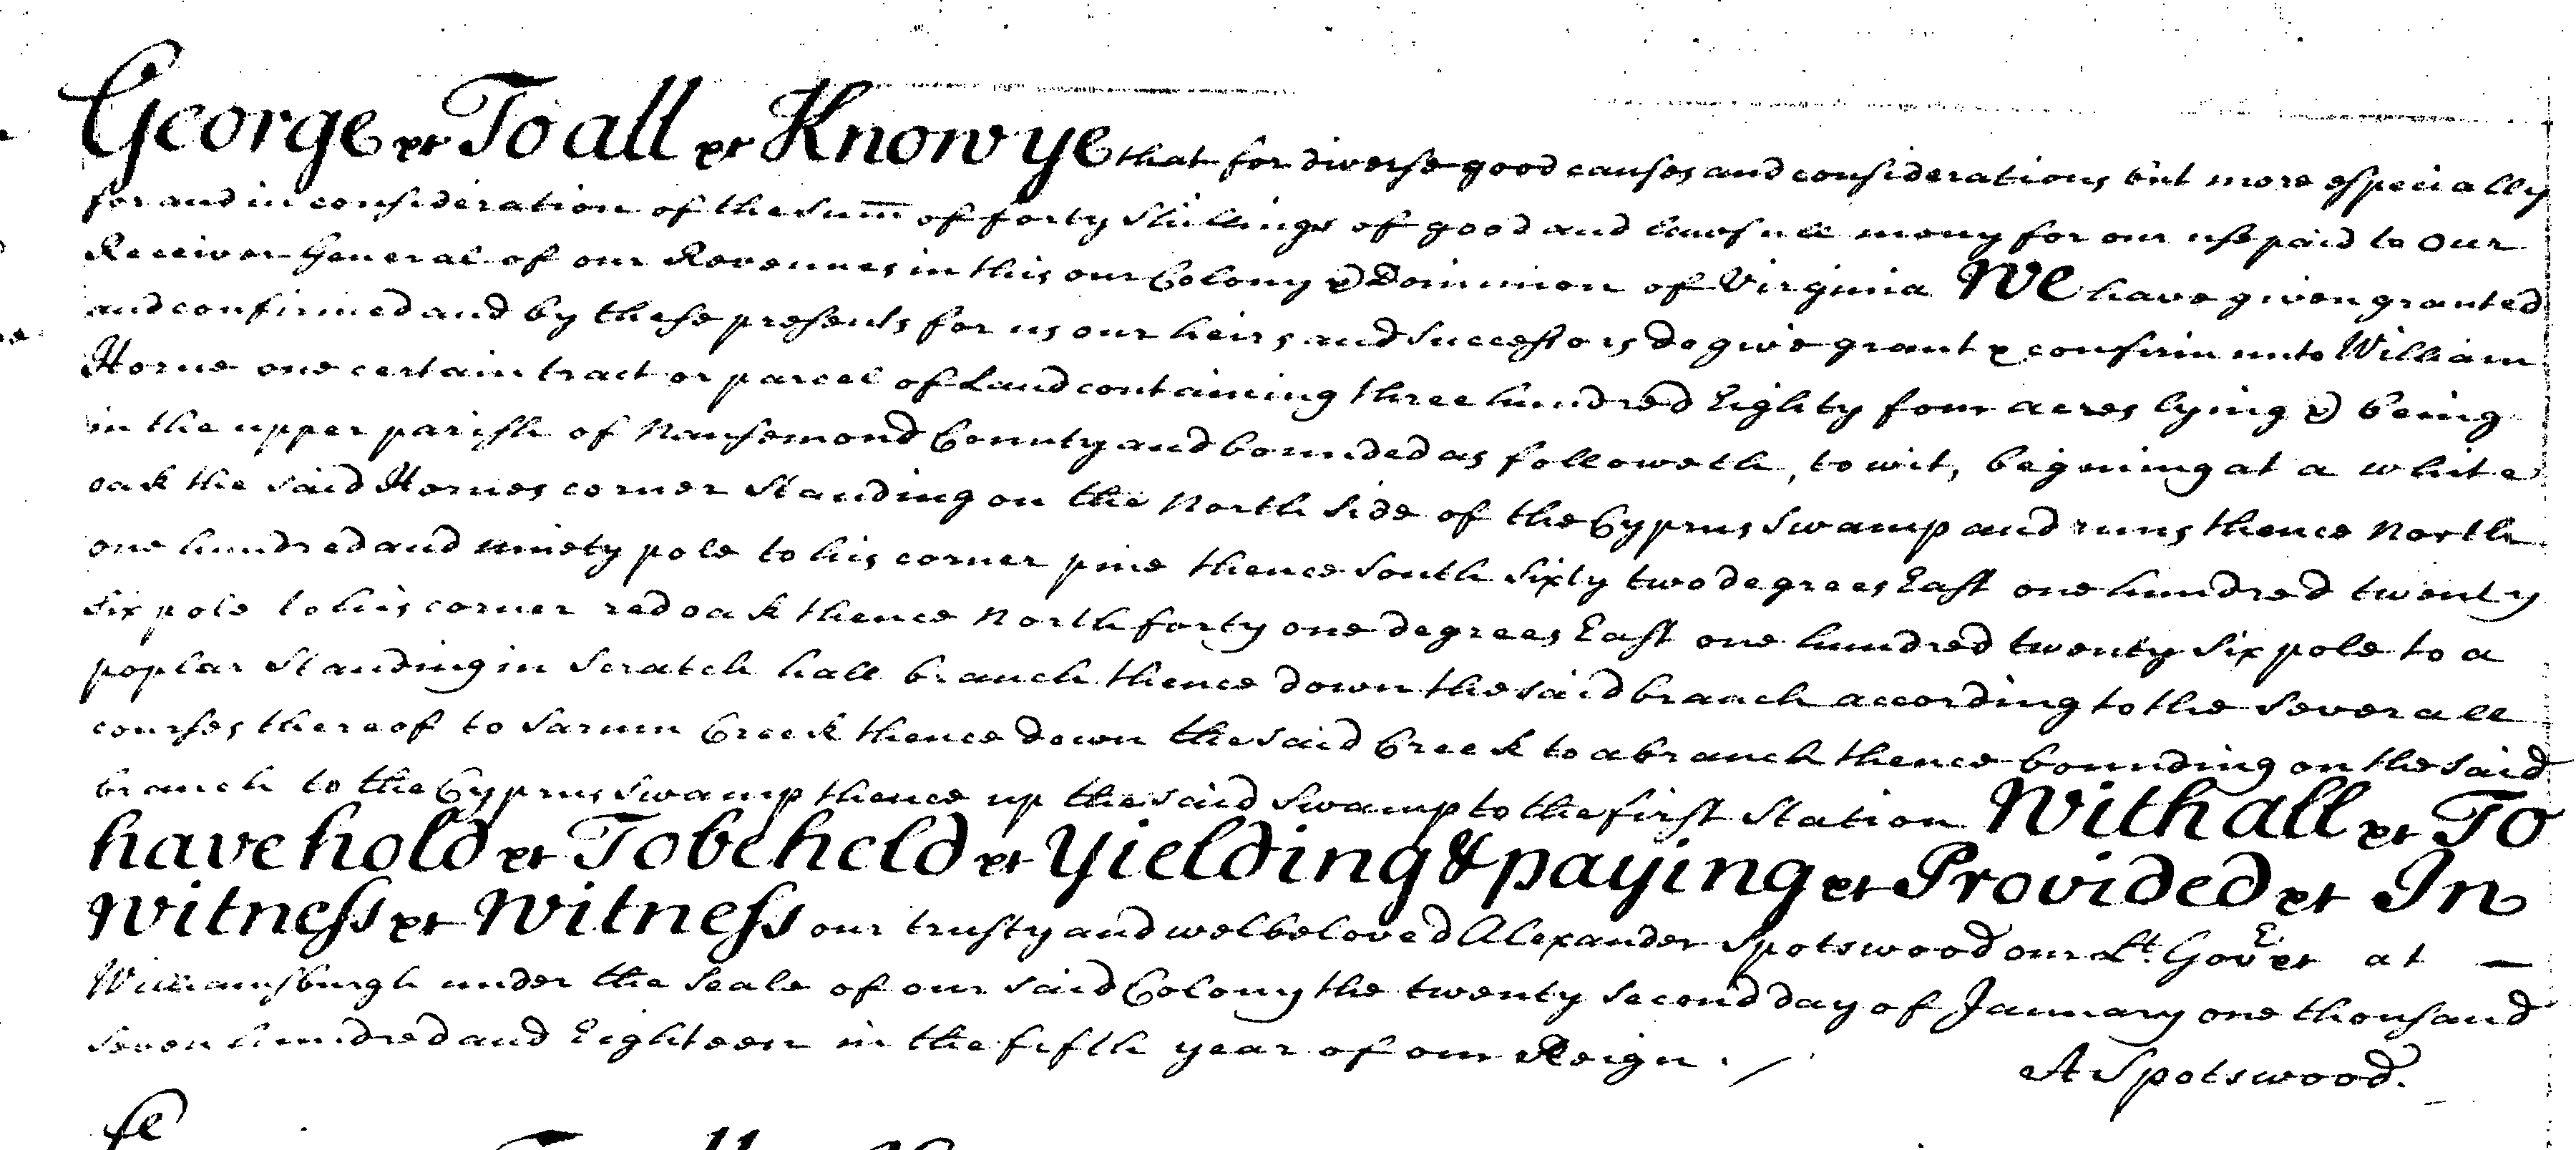 George &c To all &c Know ye that for diverse good causes and considerations but more especially
for and in consideration of the Sum̅ of forty Shillings of good and lawfull mony for our use paid to our
Receiver General of our Revenues in this our Colony & Dominion of Virginia We have given granted
and confirmed and by these presents for us our heirs and Successors do give grant & confirm unto William
Horne one certain tract or parcel of Land containing three hundred Eighty four acres lying & being
in the upper parish of Nansemond County and bounded as followeth, to wit, begining at a white
oak the said Hornes corner Standing on the North Side of the Cyprus Swamp and runs thence North
one hundred and ninety pole to his corner pine thence South Sixty two degrees East one hundred twenty
Six pole to his corner red oak thence North forty one degrees East one hundred twenty Six pole to a
poplar Standing in Scratch hall branch thence down the said branch according to the Severall
courses thereof to Sarum Creek thence down the said Creek to a branch thence bounding on the said
branch to the Cyprus Swamp thence up the said Swamp to the first Station With all &c To
have hold &c To be held &c Yielding & paying &c Provided &c In
Witness &c Witness our trusty and welbeloved Alexander Spotswood our Lt. Gover &c at —
Williamsburgh under the Seale of our said Colony the twenty Second day of January one thousand
Seven hundred and Eighteen in the fifth year of our Reign.
A Spotswood.